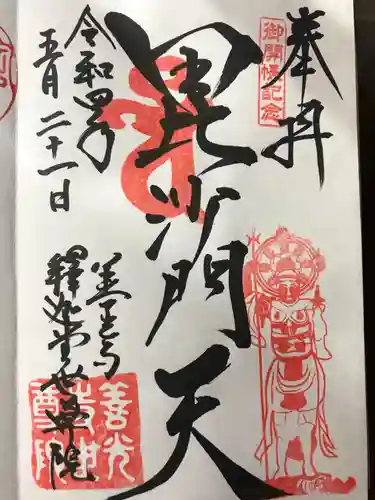 奉拝
御開帳記念
毘沙門天
令和四年
五月二十一日
善光寺
釋迦堂世尊院
善光
尊院